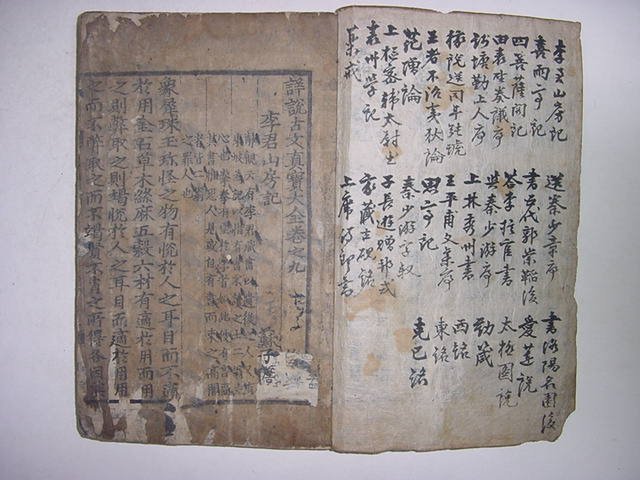 李君山房記
喜雨亭記
四菩薩閣記
田表聖奏議序
錢塘勤上人序
稼說送同年張琥
王者不治夷狄論
范增論
上樞密韓太尉書
袁州學記
藥戒
送秦少章序
書五代郭崇韜後
答李推官書
與秦少游序
上林秀州書
王平甫文集序
思亭記
秦少游字敘
子長遊贈邦式
家藏古硯銘
上席侍郎書
書洛陽名園後
愛蓮說
太極圖說
動箴
西銘
東銘
克己銘
詳說古文真寶大全卷之九
李君山房記
蘇子瞻
象犀珠玉珍怪之物有悅於人之耳目而不適
於用金石草木絲麻五穀六材有適於用而用
之則弊取之則竭悅於人之耳目而適於用用
之而不弊取之而不竭賢不肖之所得各因其